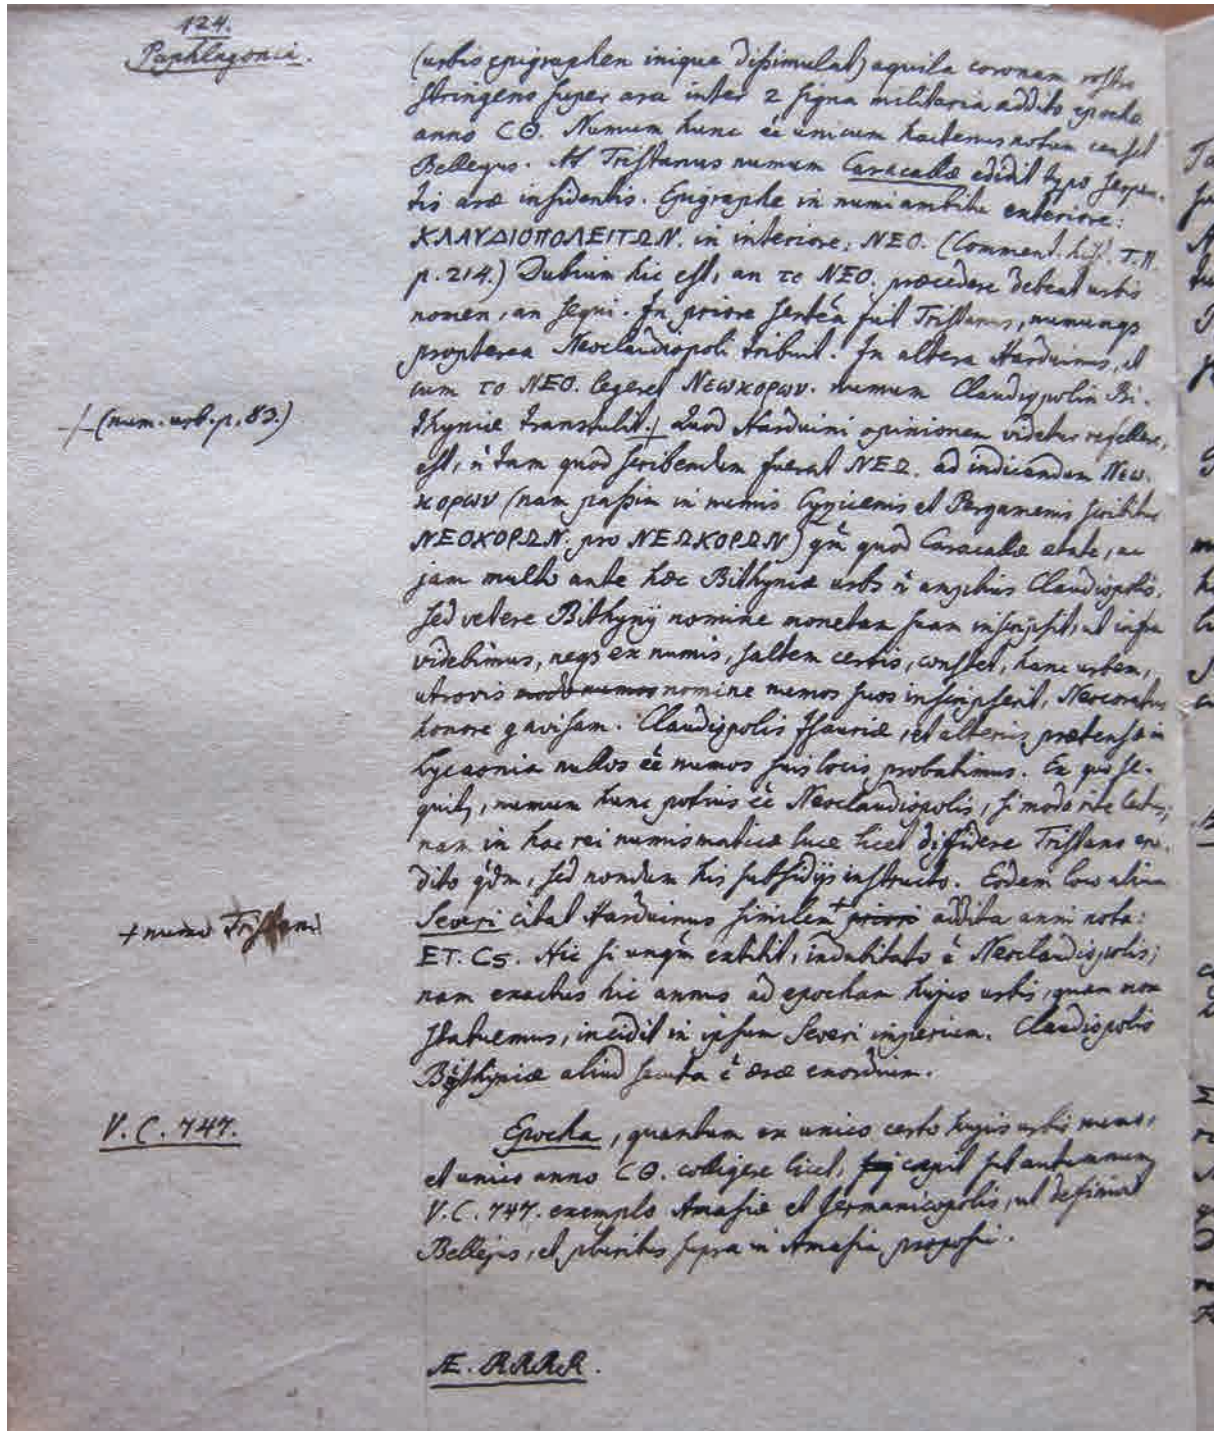 124.
Paphlagonia.
(urbis epigraphen inique dißimulat) aquila coronam rostro
stringens super ara inter 2 signa militaria addito epochae
anno CΘ. Numum hunc eé unicum hactenus notum censet
Bellegus. At Tristanus numum Caracallæ edidit typo serpen-
tis aræ insidentis. Epigraphe in numi ambitu exteriore:
ΚΛΑΥΔΙΟΠΟΛΕΙΤΩΝ. in interiore: ΝΕΟ. (Comment. hist. T. II.
p. 214.) Dubium hic est, an το ΝΕΟ. præcedere debeat urbis
nomen, an sequi. In priore sentéa fuit Tristanus, numumqs
propterea Neoclaudiopoli tribuit. In altera Harduinus, et
cum το ΝΕΟ. legeret Νεωκορων. numum Claudiopolin Bi-
-/-(num. urb. p. 83.)
thyniæ transtulit./ Quod Harduini opinionem videtur refellere,
est, ñ tam quod scribendum fuerat ΝΕΩ. ad indicandum Νεω-
κορων (nam paßim in numis Cyzicenis et Pergamenis scribitur
ΝΕΟΚΟΡΩΝ. pro ΝΕΩΚΟΡΩΝ) qm̃ quod Caracallæ ætate, ac
jam multo ante hæc Bithyniæ urbs ñ amplius Claudiopolis,
sed vetere Bithynij nomine monetam suam inscripsit, ut infra
videbimus, neqs ex numis, saltem certis, constet, hanc urbem,
utrovis modo numos nomine numos suos inscripserit, Neocoratus
honore gavisam. Claudiopolis Isauriæ, et alterius prætensæ in
Lycaonia nullos eé numos suis locis probabimus. Ex quo se-
quitur, numum hunc potius eé Neoclaudiopolis, si modo rite lectus;
nam in hac rei numismaticæ luce licet diffidere Tristano eru-
dito qdm, sed nondum his subsidijs instructo. Eodem loco alium
+ numo Tristani
Severi citat Harduinus similem + priori addita anni nota:
ET. Cς. Hic si unqm extitit, indubitato é Neoclaudiopolis;
nam exactus hic annus ad epocham hujus urbis, quam mox
statuemus, incidit in ipsum Severi imperium. Claudiopolis
Bithyniæ aliud secuta é æræ exordium.
V. C. 747.
Epocha, quantum ex unico certo hujus urbis numo,
et unico anno CΘ. colligere licet, cœpit sub autumnum
V. C. 747. exemplo Amasiæ et Germanicopolis, ut definivit
Bellejus, et pluribus supra in Amasia proposui.
Æ. RRRR.